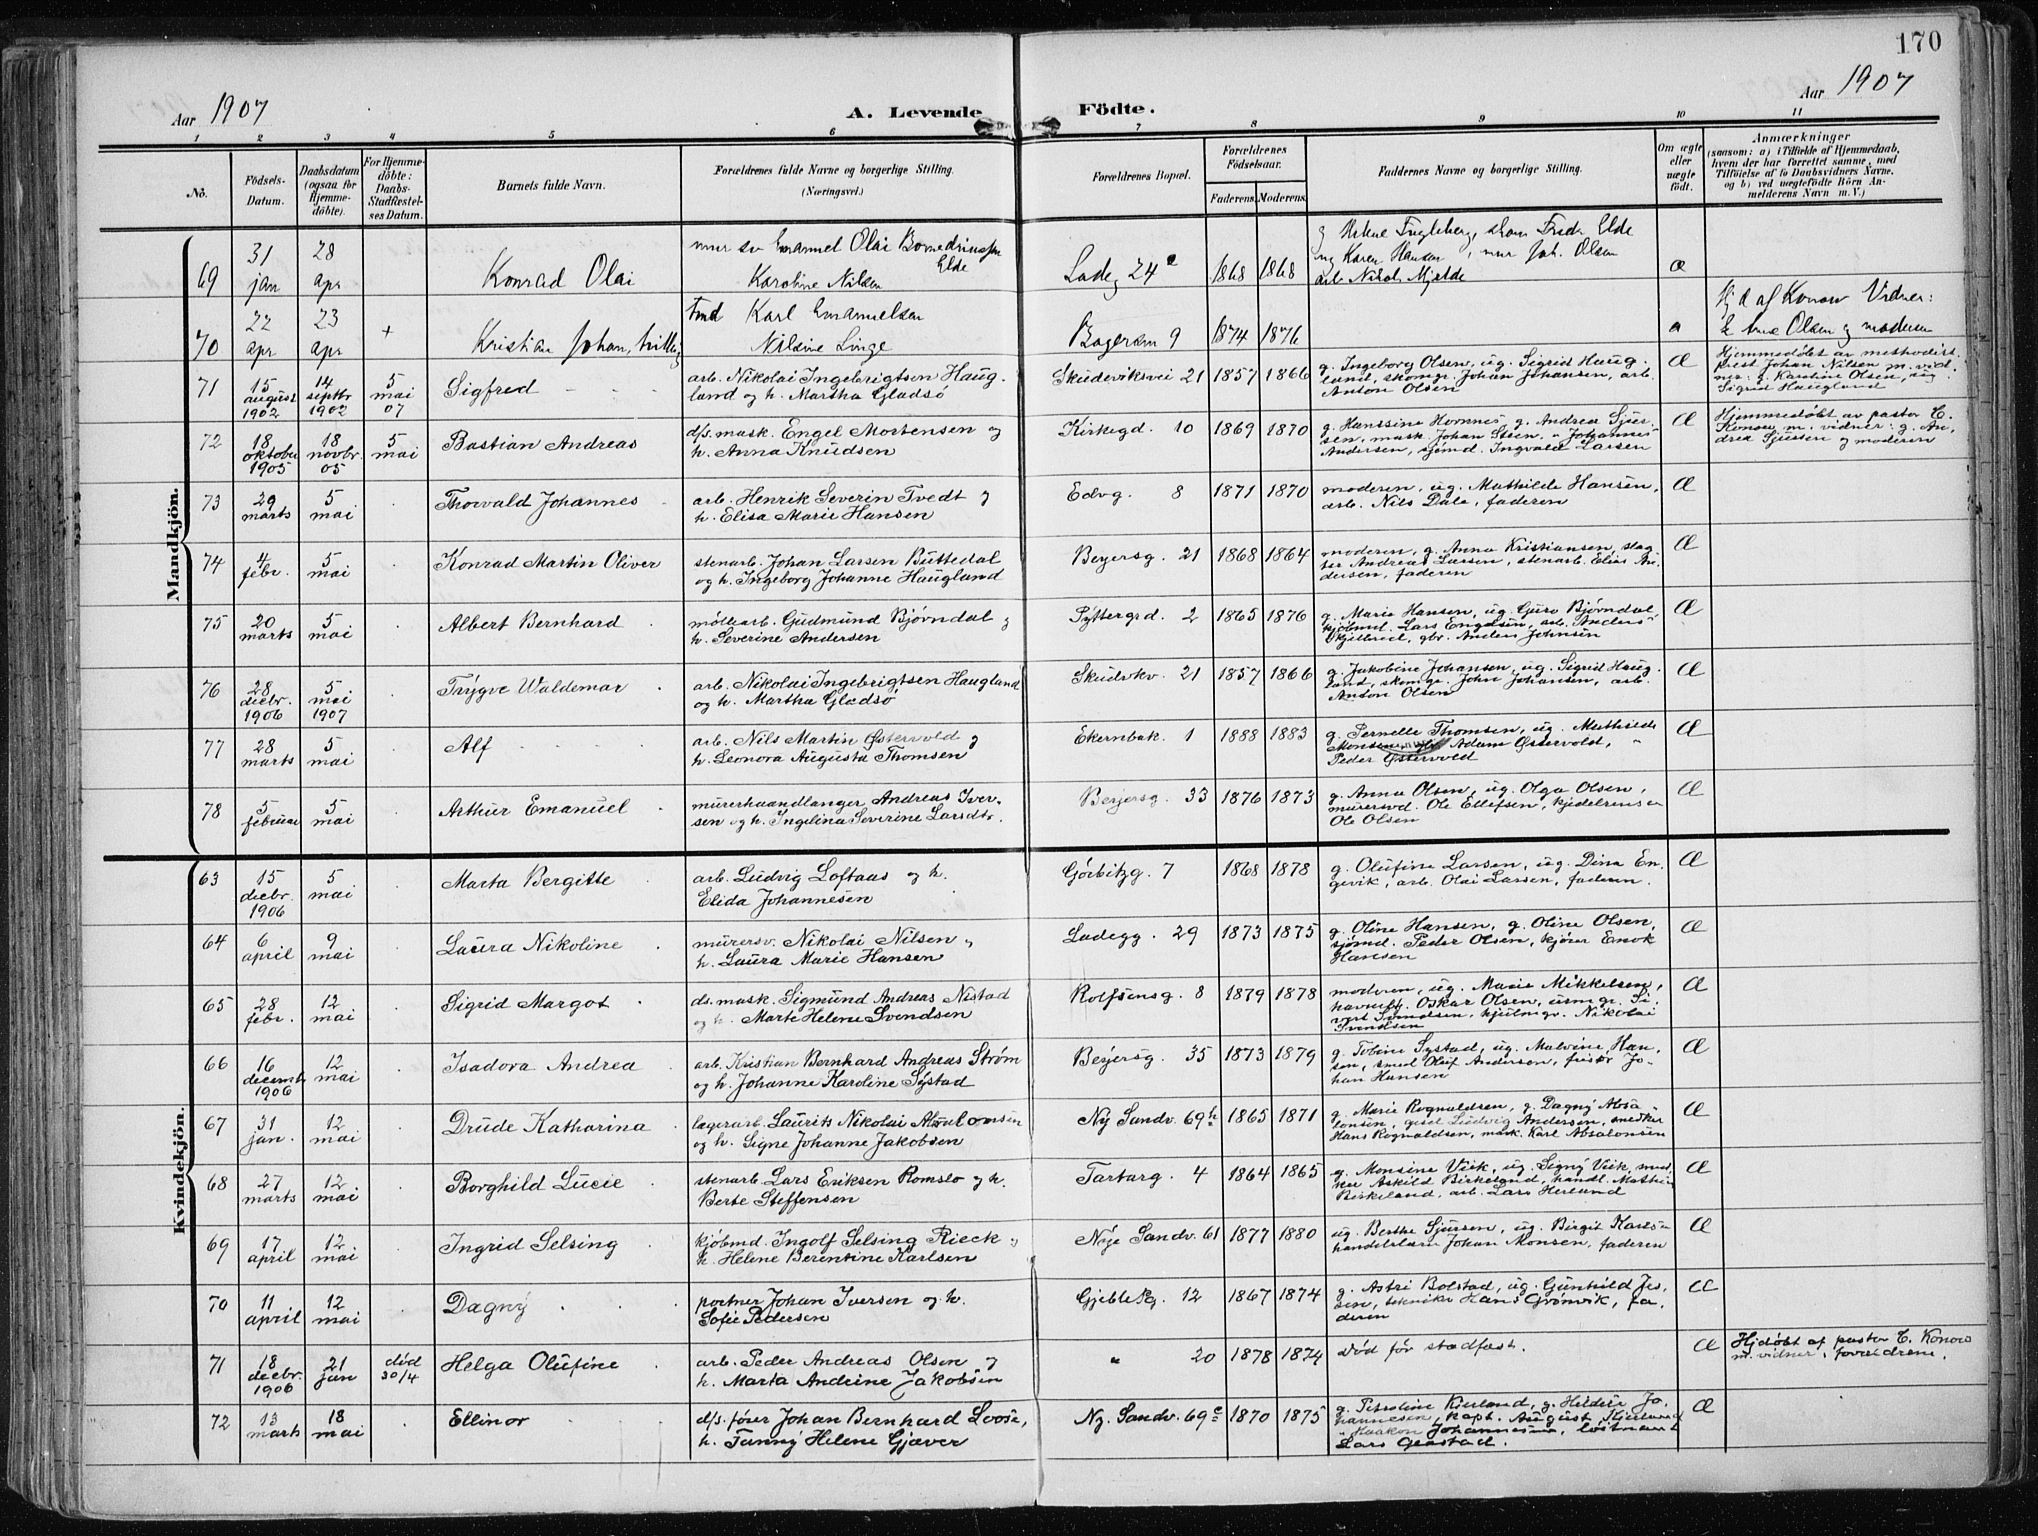 170
Aar 1907
A. Levende Födte.
Aar 1907
1 2 3 4 5 6 7 8 9 10 11
No.
Födsels-Datum.
Daabsdatum (ogsaa for Hjemme-döbte).
For Hjemme-döbte: Daabs-Stadfæstel-ses Datum.
Barnets fulde Navn.
Forældrenes fulde Navne og borgerlige Stilling. (Næringsvei.)
Forældrenes Bopæl.
Forældrenes Födselsaar.
Faderens. Moderens.
Faddernes Navne og borgerlige Stilling.
Om ægte eller uægte födt.
Anmærkninger
(saasom: a) i Tilfælde af Hjemmedaab, hvem der har forrettet samme, med Tilföielse af to Daabsvidners Navne. og b) ved uægtefödte Börn An-melderens Navn m. V.)
Mandkjön.
69 31 jan 28 apr Konrad Olai mur sv Emanuel Olai Elde Karoline Nilsen Ladeg 24 1868 1868 Karen Hansen, mur Joh. Olsen arb Nikol. Mjelde
70 22 apr 23 apr + Kristian Johan, tvilling Karl Emanuelsen Nilsine Linge 9 1874 1876 Hjd af Konow Vidner: Olsen og moderen
71 15 august 1902 14 septbr 1902 5 mai 07 Sigfred arb. Nikolai Ingebrigtsen Haug-
land og h. Martha Gladsö Skudeviksvei 21 1857 1866 g. Ingeborg Olsen, ug. Sigrid Haug-
land, skomgr. Johan Johansen, arb. Anton Olsen Æ Hjemmedöbt av methodist-
prest Johan Nilsen m. vid-
ner: g. Karine Olsen, ug Sigrid Haugland
72 18 oktober 1905 18 novbr. 05 5 mai Bastian Andreas d/s. mask. Engel Mortensen og
h. Anna Knudsen Kirkegd. 10 1869 1870 g. Hanssine Homnes g. Andrea Sjur-
sen, mask. Johan Steen, " Johannes
Andersen, sjömd. Ingvald Larsen Æ Hjemmedöbt av pastor C.
Konow m. vidner: g. An-
drea Sjursen og moderen
73 29 marts 5 mai Thorvald Johannes arb. Henrik Severin Tvedt og
h. Elisa Marie Hansen Edvg. 8 1871 1870 moderen, ug. Mathilde Hansen,
arb. Nils Dale, faderen Æ
74 4 febr. 5 mai Konrad Martin Oliver stenarb. Johan Larsen Buttedal
og h. Ingeborg Johanne Haugland Beyersg. 21 1868 1864 moderen, g. Anna Kristiansen, slag-
ter Andreas Larsen, stenarb. Elias An-
dersen, faderen Æ
75 20 marts 5 mai Albert Bernhard möllearb. Gudmund Bjørndal og
h. Severine Andersen Pyttergrd. 2 1865 1876 g. Marie Hansen, ug. Guro Bjørndal,
kjöbmd. Lars Engelsen, arb. Anders
Skjelbred, gbr. Anders Johnsen Æ
76 28 decbr. 1906 5 mai 1907 Trygve Waldemar arb. Nikolai Ingebrigtsen Haugland
og h. Martha Gladsö Skudvkv. 21 1857 1866 g. Jakobine Johansen, ug. Sigrid Haug-
land, skomgr. John Johansen, arb.
Anton Olsen Æ
77 28 marts 5 mai Alf arb. Nils Martin Østervold og
h. Leonora Augusta Thomsen Ekernbak. 1 1888 1883 g. Pernelle Thomsen, ug. Mathilde
Monsen, Adam Østervold, "
Peder Østervold Æ
78 5 februar 5 mai Arthur Emanuel murerhaandlanger Andreas Iver-
sen og h. Ingelina Severine Larsdtr. Beyersg. 33 1876 1873 g. Anna Olsen, ug. Olga Olsen,
murersvd. Ole Ellefsen, kjedelrenser
Ole Olsen Æ
Kvindekjön.
63 15 decbr. 1906 5 mai Marta Bergitte arb. Ludvig Loftaas og h.
Elida Johannesen Görbitzg. 7 1868 1878 g. Olufine Larsen, ug. Dina En-
gevik, arb. Olai Larsen, faderen. Æ
64 6 april 9 mai Laura Nikoline murersv. Nikolai Nilsen og
h. Laura Marie Hansen Ladegg. 29 1873 1875 g. Oline Hansen, g. Oline Olsen,
sjömd. Peder Olsen, kjörer Enok
Hansen Æ
65 28 febr. 12 mai Sigrid Margot ds. mask. Sigmund Andreas Nistad
og h. Marte Helene Svendsen Rolfsensg. 8 1879 1878 moderen, ug. Marie Mikkelsen,
havnefgt. Oskar Olsen, usmgr. Si-
vert Svendsen, hjulmgr. Nikolai
Svendsen Æ
66 16 decemb. 1906 12 mai Isadora Andrea arb. Kristian Bernhard Andreas Ström
og h. Johanne Karoline Systad Beyersg. 35 1873 1879 g. Tobine Systad, ug. Malvine Han-
sen, smed Oluf Andersen, frisör Jo-
han Hansen Æ
67 31 jan. 12 mai Drude Katharina lagerarb. Laurits Nikolai Absalonsen
og h. Signe Johanne Jakobsen Ny Sandv. 69 h 1865 1871 g. Marie Rognaldsen, g. Dagny Absa-
lonsen, gsel Ludvig Andersen, snedker
Hans Rognaldsen, mask. Karl Absalonsen Æ
68 27 marts 12 mai Borghild Lucie stenarb. Lars Eriksen Romslo og h.
Berte Steffensen Tartarg. 4 1864 1865 g. Monsine Viik, ug. Signy Viik, sned-
ker Askild Birkeland, handl. Mathias
Birkeland, arb. Lars Herland Æ
69 17 april 12 mai Ingrid Selsing kjöbmd. Ingolf Selsing Rieck og
h. Helene Berentine Karlsen Nye Sandv. 61 1877 1880 ug. Berthe Sjursen, ug. Birgit Karlsen
handelslærl Johan Monsen, faderen Æ
70 11 april 12 mai Dagny portner Johan Iversen og h.
Sofie Pedersen Gjeble Pg. 12 1867 1874 g. Astri Bolstad, ug. Gunhild Jes-
sen, tekniker Hans Grönvik, fa-
deren Æ
71 18 decbr. 1906 21 jan död 30/4 Helga Olufine arb. Peder Andreas Olsen og
h. Marta Andrine Jakobsen " 20 1878 1874 Död för stadfæst. Æ Hjdöbt af pastor C. Konow
m. vidner: forældrene.
72 13 marts 18 mai Ellinor d/s. förer Johan Bernhard Loose,
h. Fanny Helene Gjæver Ny. Sandv. 69 e 1870 1875 g. Petroline Kjelland, g. Hildele Jo-
hannesen, kapt. August Kjelland
" Haakon Johannesen, löitnant
Lars Gjestad. Æ